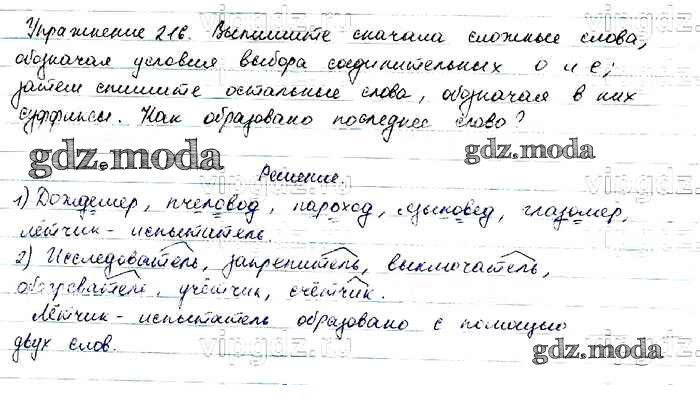 Упражнение 216. Выпишите сначала сложные слова,
обозначая условия выбора соединительных о и е;
затем спишите остальные слова, обозначая в них
суффиксы. Как образовано последнее слово?
gdz.moda
gdz.moda
Решение.
1) Дождемер, пчеловод, пароход, языковед, глазомер,
лётчик - испытатель.
2) Исследователь, закрепитель, выключатель,
обогреватель, учётчик, счётчик.
Лётчик - испытатель образовано с помощью
двух слов.
vipgdz.ru
gdz.moda